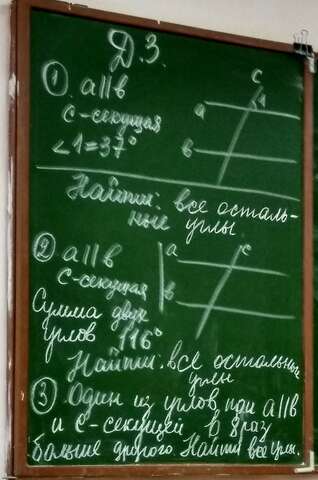 Д.З.
① a||b
c-секущая
∠1=37°
c
1
a
b
Найти: все осталь-
ные углы
② a||b
c-секущая
a
c
b
Сумма двух
углов 116°
Найти: все остальные
углы
③ Один из углов при a||b
и c-секущей в 8 раз
больше другого Найти все углы.